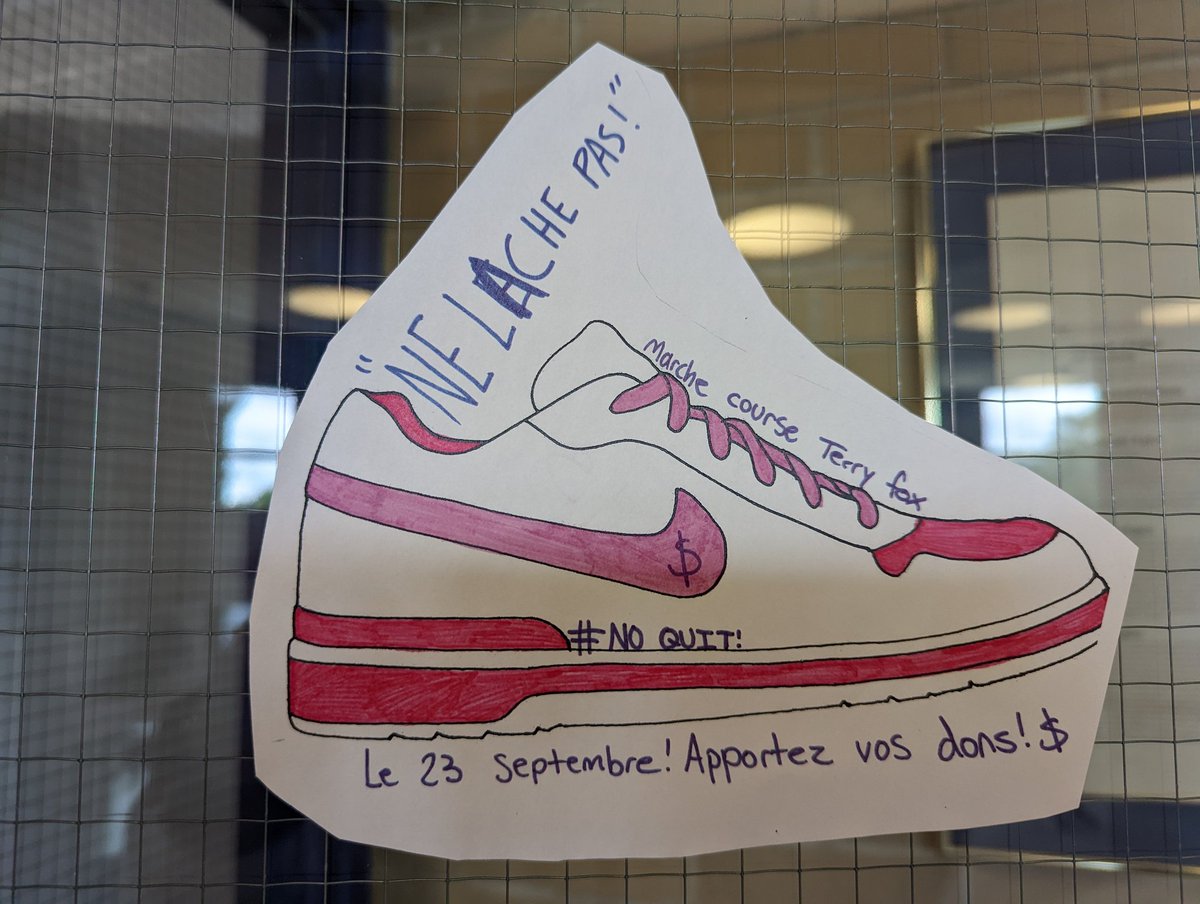 "NE LACHE PAS!"
Marche course Terry fox
$
#NO QUIT!
Le 23 Septembre! Apportez vos dons! $